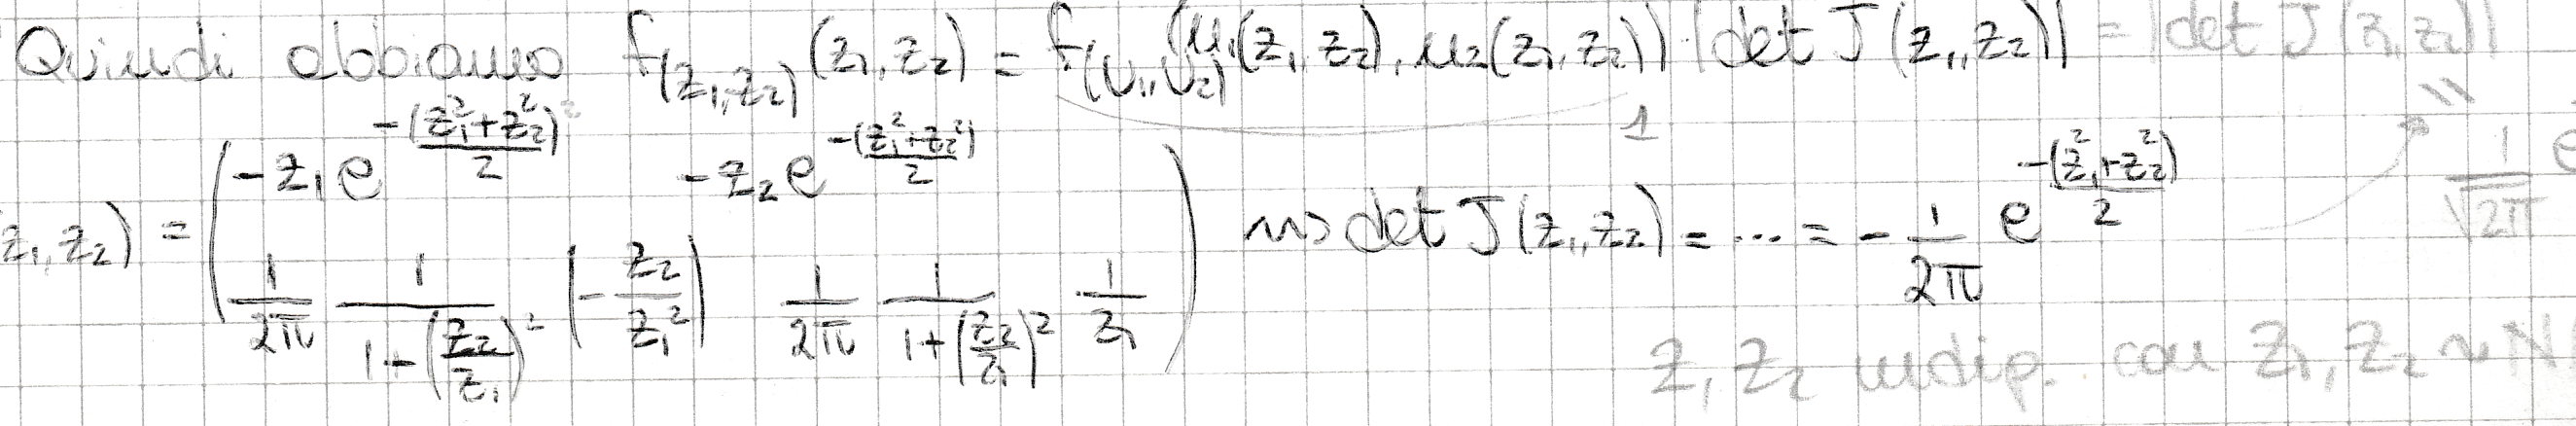 Quindi abbiamo f_(Z₁,Z₂)(z₁,z₂) = f_(U₁,U₂)(u₁(z₁,z₂),u₂(z₁,z₂))·|det J(z₁,z₂)| = |det J(z₁,z₂)|
1
z₁,z₂) = ( -z₁e^(-(z₁²+z₂²)/2) -z₂e^(-(z₁²+z₂²)/2) ; 1/2π 1/(1+(z₂/z₁)²) (-z₂/z₁²) 1/2π 1/(1+(z₂/z₁)²) 1/z₁ ) ⇝ det J(z₁,z₂) = ... = -1/2π e^(-(z₁²+z₂²)/2)
1/√2π e
Z₁,Z₂ indip. con Z₁,Z₂ ~ N